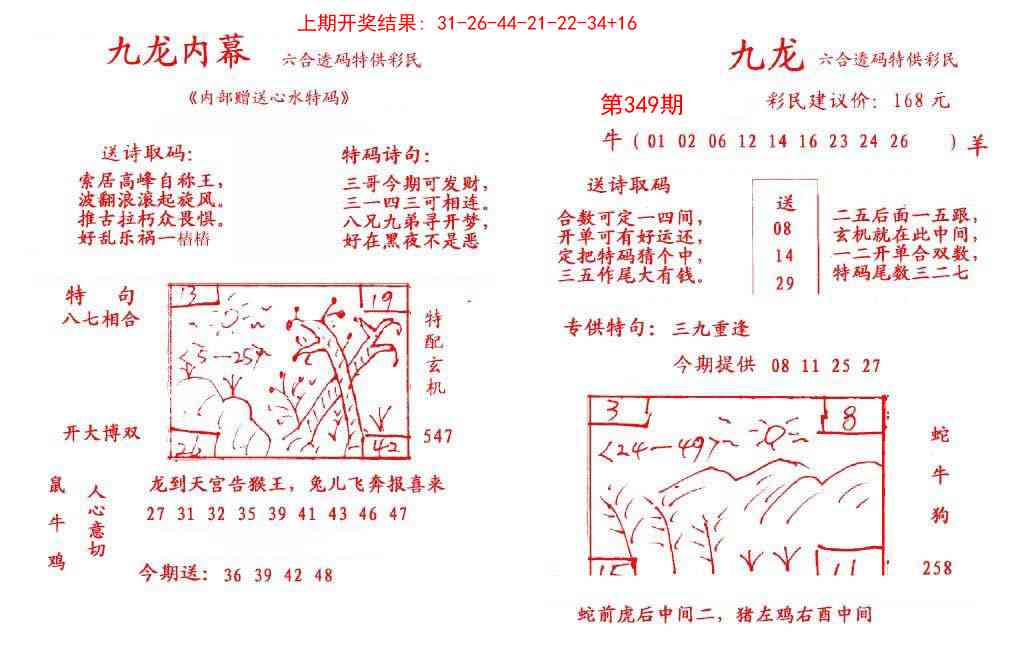 上期开奖结果: 31-26-44-21-22-34+16
九龙内幕 六合透码特供彩民
《内部赠送心水特码》
送诗取码:
索居高峰自称王，
波翻浪滚起旋风。
推古拉朽众畏惧。
好乱乐祸一樁樁
特码诗句:
三哥今期可发财，
三一四三可相连。
八兄九弟寻开梦，
好在黑夜不是恶
特 句
八七相合
开大博双
13
19
<5—25>
42
特配玄机
547
鼠牛鸡
人心意切
龙到天宫告猴王，兔儿飞奔报喜来
27 31 32 35 39 41 43 46 47
今期送: 36 39 42 48
九龙 六合透码特供彩民
第349期
彩民建议价: 168 元
牛 (01 02 06 12 14 16 23 24 26 ) 羊
送诗取码
合数可定一四间，
开单可有好运还，
定把特码猜个中，
三五作尾大有钱。
送
08
14
29
二五后面一五跟，
玄机就在此中间，
一二开单合双数，
特码尾数三二七
专供特句: 三九重逢
今期提供 08 11 25 27
3
8
<24—49>
15
11
蛇
牛
狗
258
蛇前虎后中间二，猪左鸡右酉中间